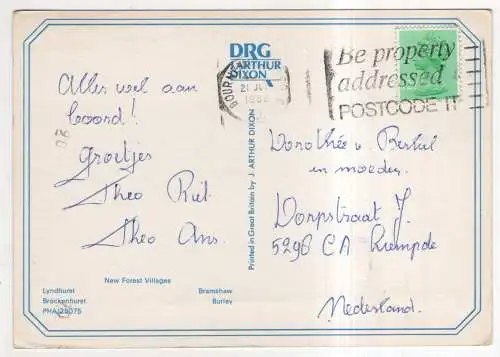 DRG
J. ARTHUR
DIXON
BOURNEM
21 JU
Be properly
addressed
POSTCODE IT
Alles wel aan
boord!
Groetjes
Theo Riet.
Theo Ans.
Printed in Great Britain by J. ARTHUR DIXON
Dorothée v. Berkel
en moeder.
Dorpstraat 7.
5296 CA
Nederland.
New Forest Villages
Lyndhurst Bramshaw
Brockenhurst Burley
PHA/25075